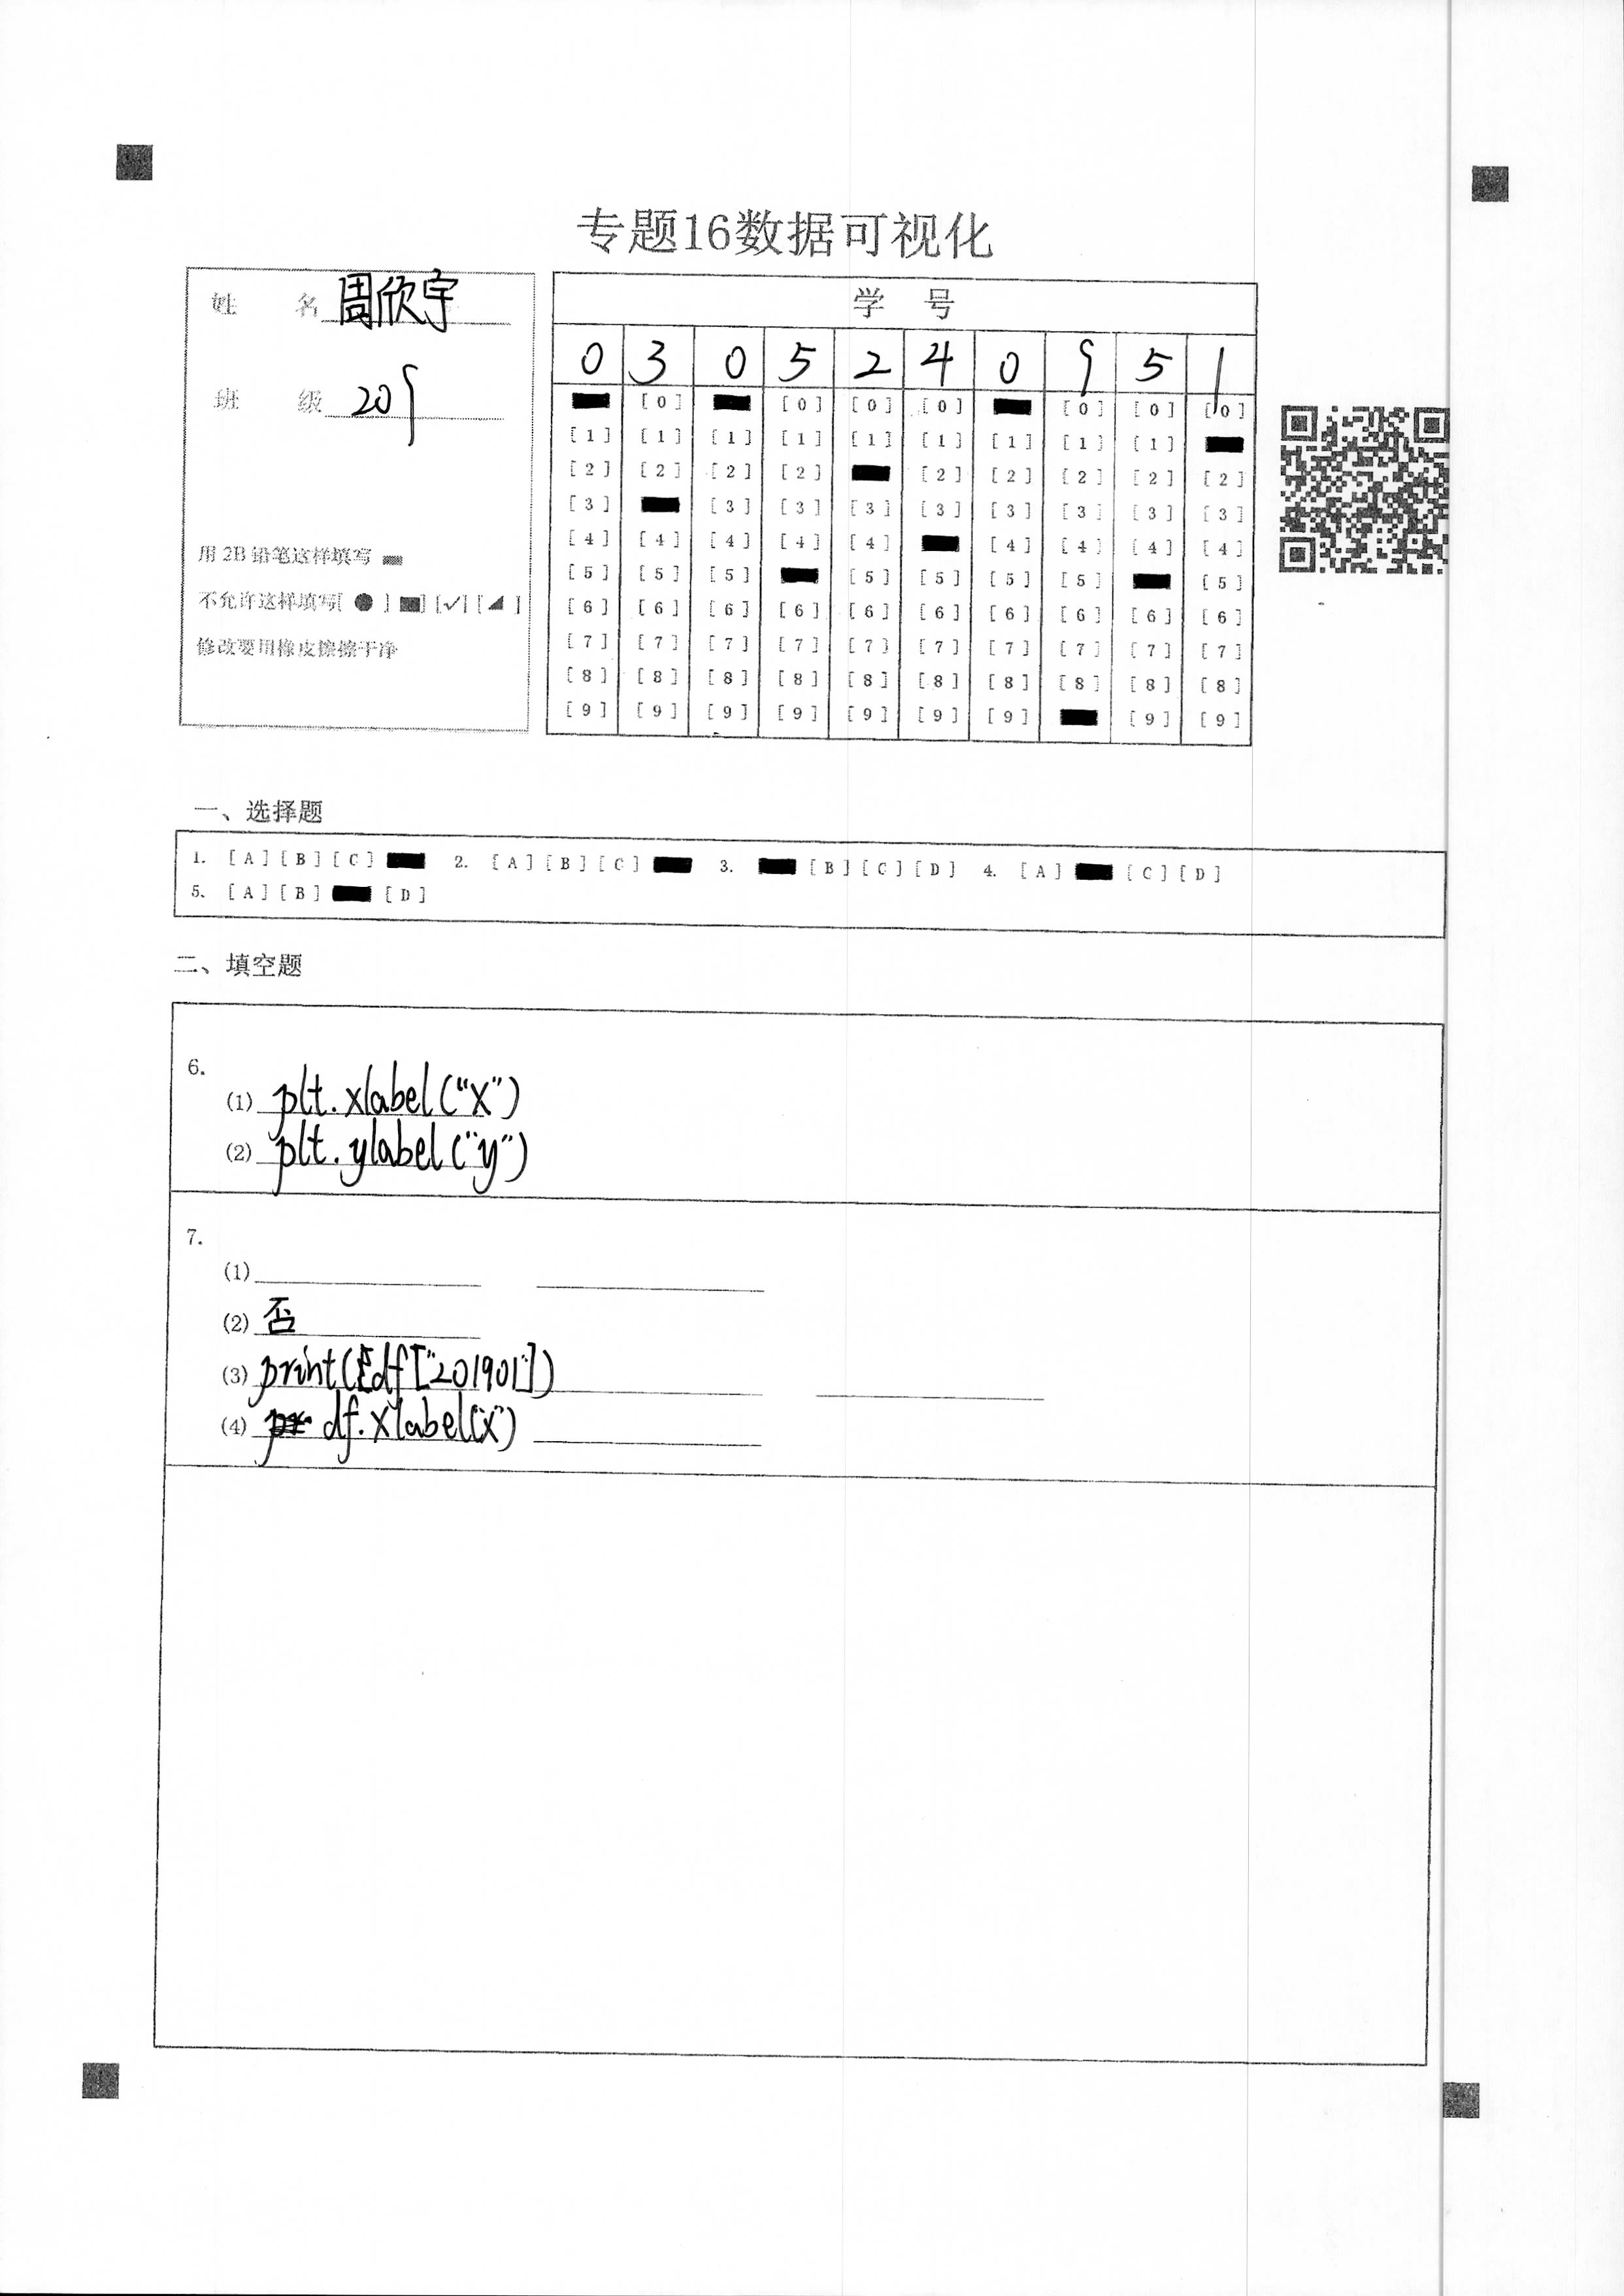 专题16数据可视化
姓 名 周欣宇
班 级 209
用2B铅笔这样填写
不允许这样填写[ ● ] [✓] [◢ ]
修改要用橡皮擦擦干净
学 号
0 3 0 5 2 4 0 9 5 1
[0] [0] [0] [0] [0] [0] [0]
[1] [1] [1] [1] [1] [1] [1] [1] [1]
[2] [2] [2] [2] [2] [2] [2] [2] [2]
[3] [3] [3] [3] [3] [3] [3] [3] [3]
[4] [4] [4] [4] [4] [4] [4] [4] [4]
[5] [5] [5] [5] [5] [5] [5] [5]
[6] [6] [6] [6] [6] [6] [6] [6] [6] [6]
[7] [7] [7] [7] [7] [7] [7] [7] [7] [7]
[8] [8] [8] [8] [8] [8] [8] [8] [8] [8]
[9] [9] [9] [9] [9] [9] [9] [9] [9]
一、选择题
1. [A] [B] [C] 2. [A] [B] [C] 3. [B] [C] [D] 4. [A] [C] [D]
5. [A] [B] [D]
二、填空题
6.
(1) plt.xlabel("x")
(2) plt.ylabel("y")
7.
(1)
(2) 否
(3) print(df["201901"])
(4) df.xlabel("x")